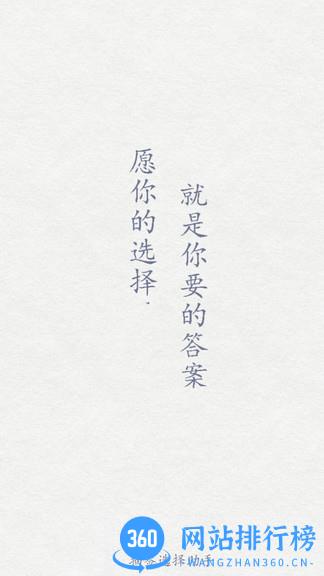 愿你的选择.
就是你要的答案
选择助手
360
网站排行榜
WANGZHAN360.CN